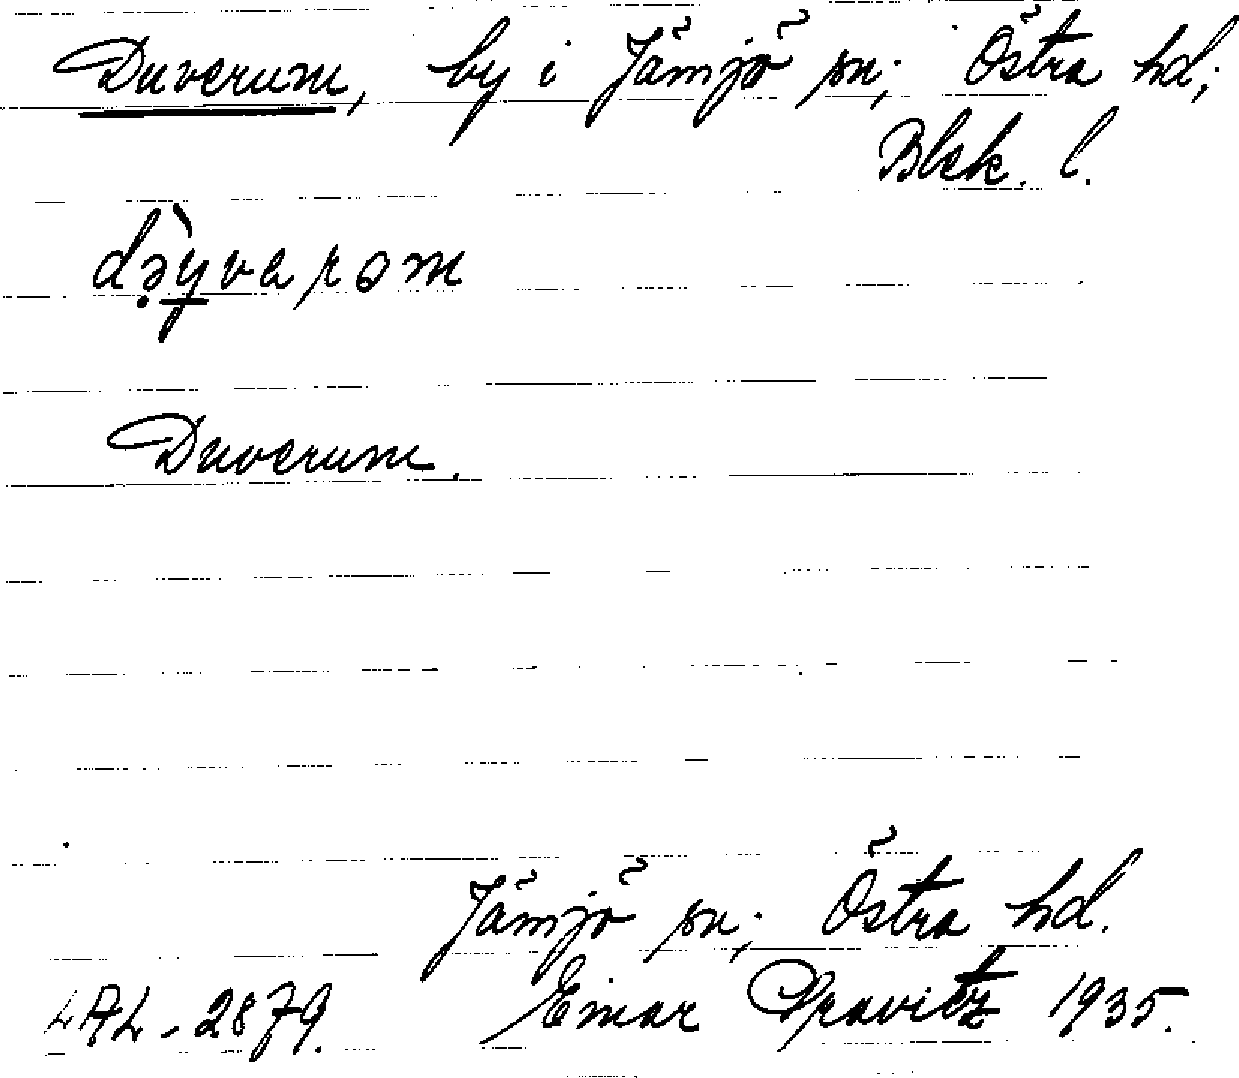 Duverum, by i Jämjö sn; Östra hd;
Blek. l.
də̣ỳ̠varom
Duverum.
Jämjö sn; Östra hd.
LAL. 2879. Einar Gravitz 1935.